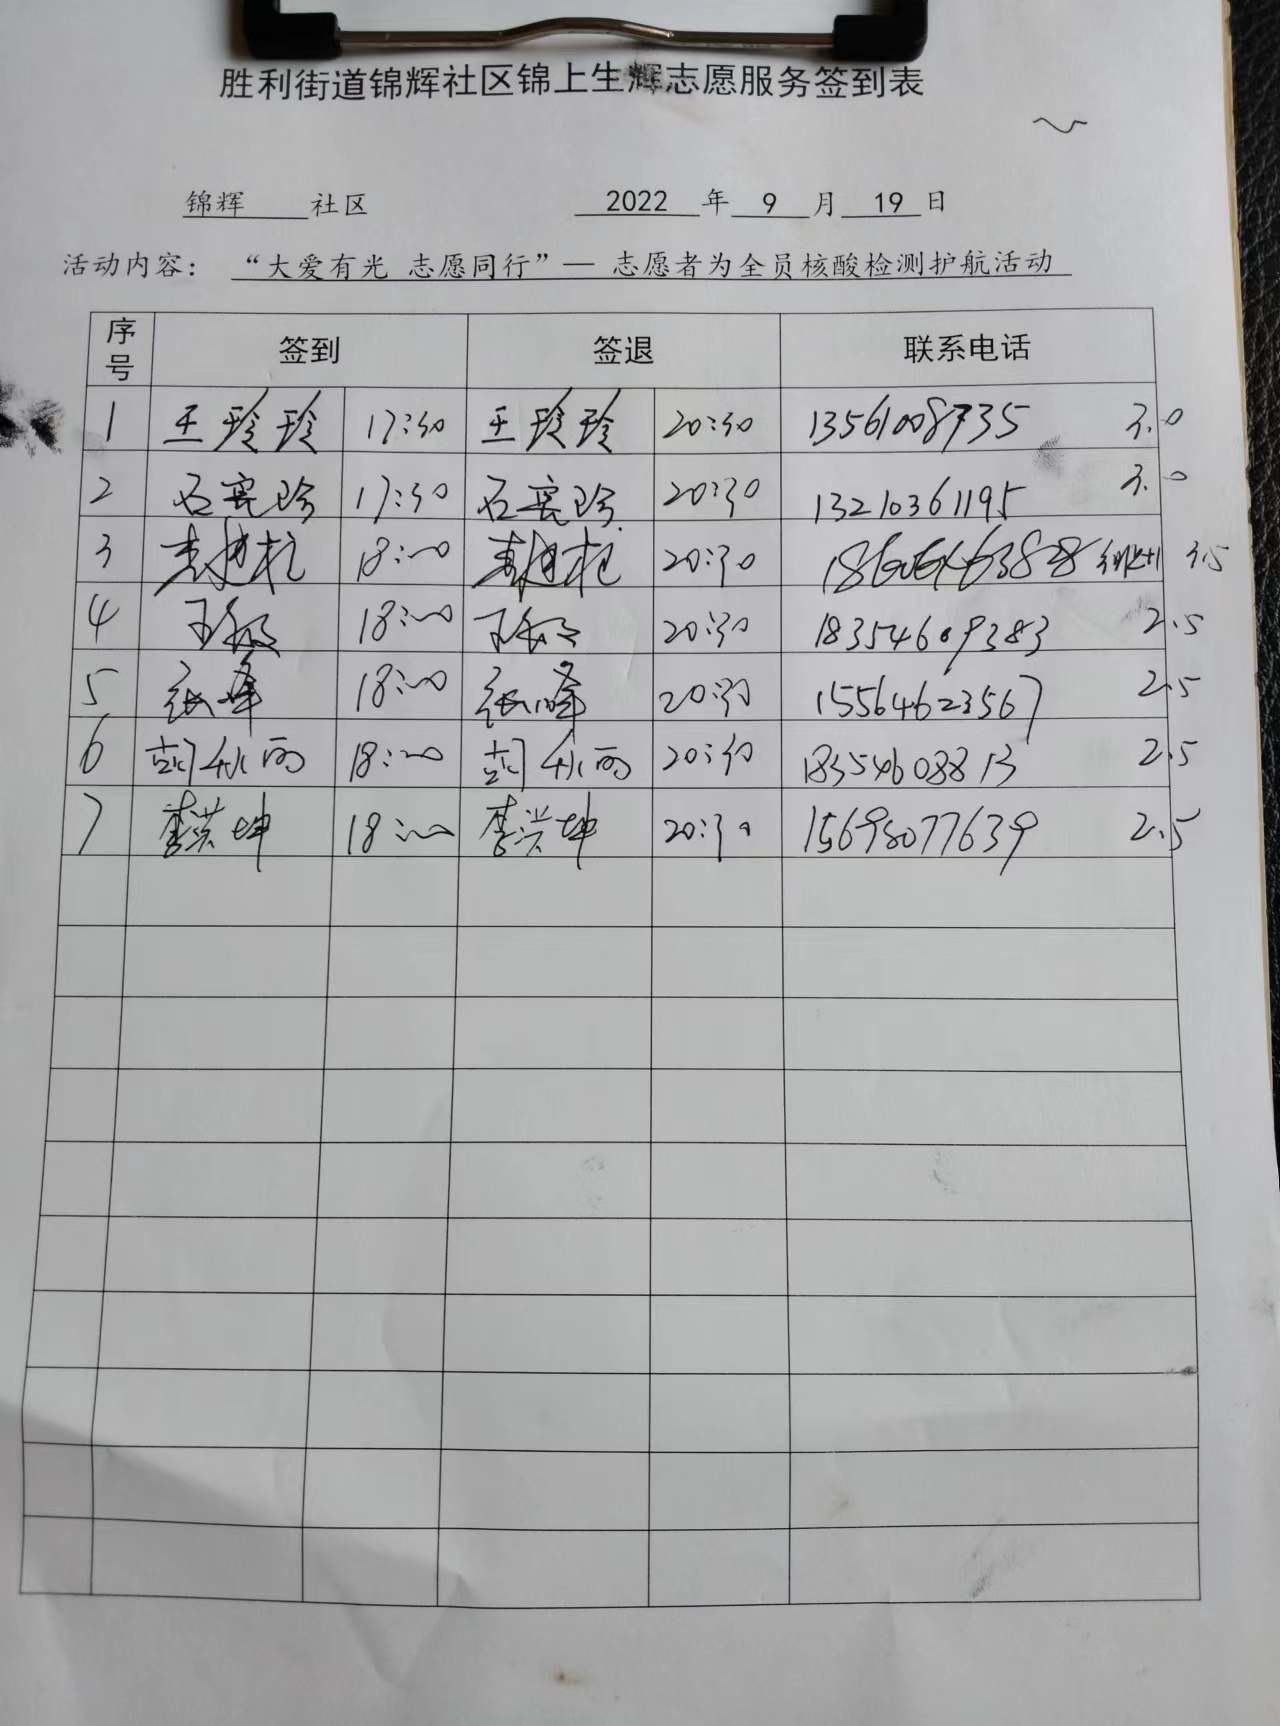 胜利街道锦辉社区锦上生辉志愿服务签到表
锦辉 社区 2022 年 9 月 19 日
活动内容： “大爱有光 志愿同行”— 志愿者为全员核酸检测护航活动
序号 签到 签退 联系电话
1 王玲玲 17:30 王玲玲 20:30 13561008735 3.0
2 石 珍 17:30 石 珍 20:30 13210361195 3.0
3 18:00 20:30 3.5
4 王 18:00 王 20:30 18354609383 2.5
5 张峰 18:00 张峰 20:30 15564623567 2.5
6 胡秋雨 18:00 胡秋雨 20:30 18354608813 2.5
7 李洪坤 18:00 李洪坤 20:30 15698077639 2.5